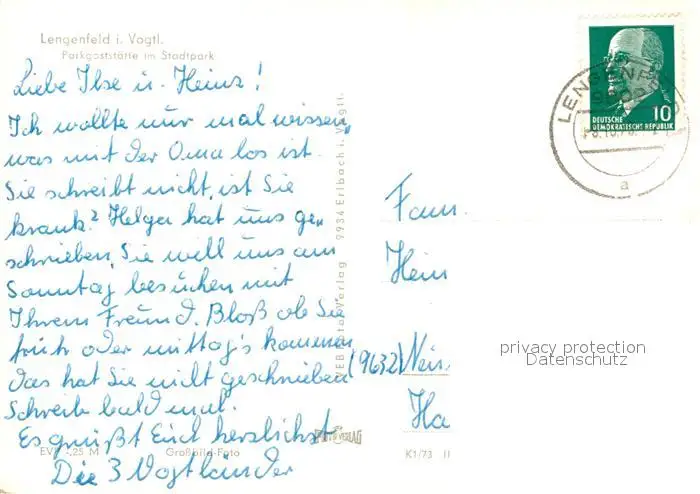 Lengenfeld i. Vogtl.
Parkgaststätte im Stadtpark
Liebe Ilse u. Heinz!
Ich wollte nur mal wissen,
was mit der Oma los ist.
Sie schreibt nicht, ist Sie
krank? Helga hat uns ge„
schrieben, Sie will uns am
Sonntag besuchen mit
Ihrem Freund. Bloß ob Sie
früh oder mittag's kommen
das hat Sie nicht geschrieben
Schreib bald mal.
Es grüßt Euch herzlichst
Die 3 Vogtländer
EVP -,25 M
Großbild-Foto
9934 Erlbach i. Vogtl.
K1/73
Fam.
Hein
(9632) Neu
Ha
10
DEUTSCHE
DEMOKRATISCHE REPUBLIK
a
privacy protection
Datenschutz